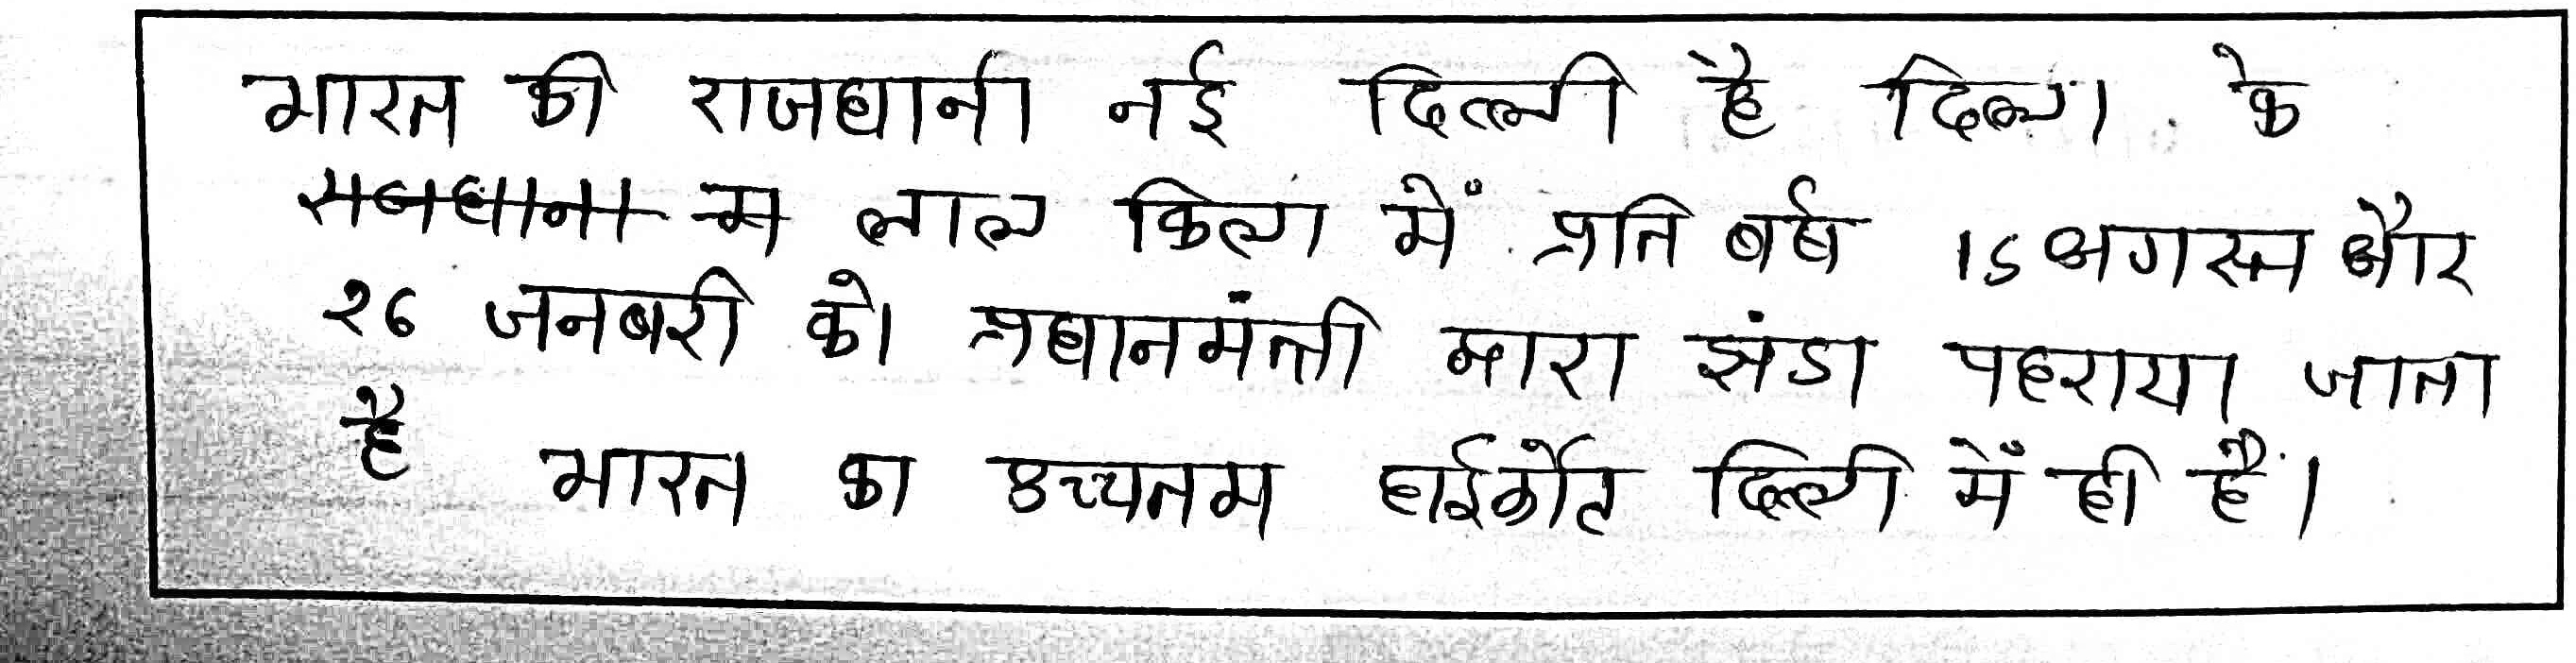 भारत की राजधानी नई दिल्ली है दिल्ली के
लाल किला में प्रति बर्ष 15 अगस्त और
26 जनबरी को प्रधानमंत्री द्वारा झंडा पहराया जाता
है भारत का उच्चतम हाईर्कोट दिल्ली में ही है।